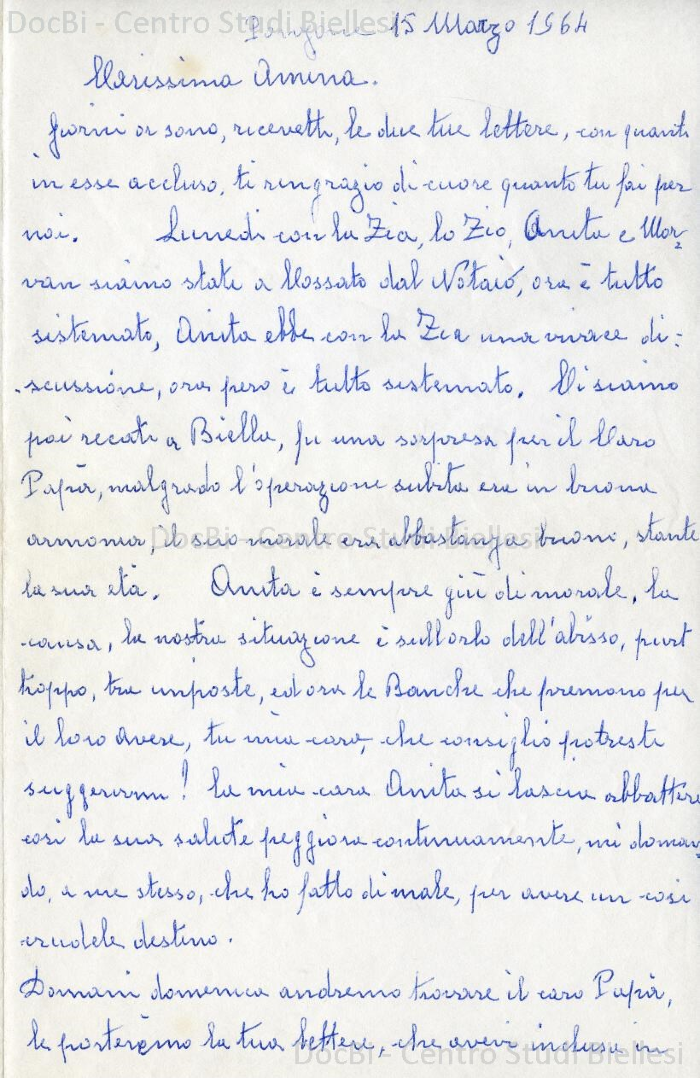 DocBi - Centro Studi Biellesi
15 Marzo 1964
Carissima Amina.
Giorni or sono, ricevetti, le due tue lettere, con quanti
in esse accluso, ti ringrazio di cuore quanto tu fai per
noi. Lunedi con la Zia, lo Zio, Anita e Mor=
van siamo stati a Cossato dal Notaio, ora è tutto
sistemato, Anita ebbe con la Zia una vivace di=
scussione, ora però è tutto sistemato. Ci siamo
poi recati a Biella, fu una sorpresa per il Caro
Papà, malgrado l'operazione subita era in buona
armonia, il suo morale era abbastanza buono, stante
la sua età. Anita è sempre giù di morale, la
causa, la nostra situazione è sull'orlo dell'abisso, purt
troppo, tra imposte, ed ora le Banche che premono per
il loro avere, tu mia cara, che consiglio potresti
suggerirmi! la mia cara Anita si lascia abbattere
così la sua salute peggiora continuamente, mi doman=
do, a me stesso, che ho fatto di male, per avere un così
crudele destino.
Domani domenica andremo trovare il caro Papà,
le porteremo la tua lettere, che avevi inclusa in
DocBi - Centro Studi Biellesi
DocBi - Centro Studi Biellesi